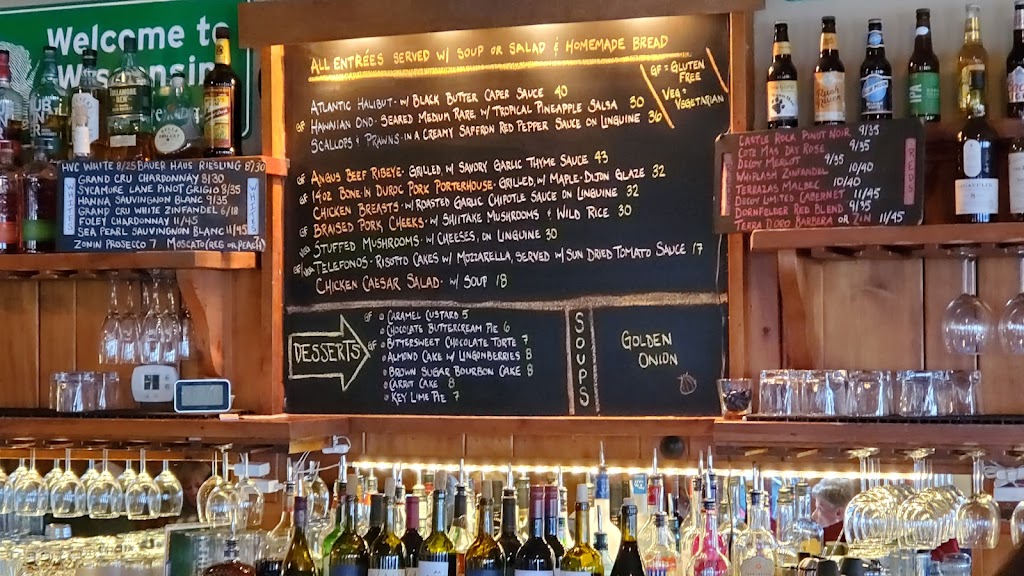 Welcome to
Wisconsin
HVC WHITE 8/25 BAUER HAUS RIESLING 8/30
GRAND CRU CHARDONNAY 8/30
SYCAMORE LANE PINOT GRIGIO 8/35
HANNA SAUVIGNON BLANC 9/35
GRAND CRU WHITE ZINFANDEL 6/18
FOLEY CHARDONNAY 11/45
SEA PEARL SAUVIGNON BLANC 11/45
ZONIN PROSECCO 7 MOSCATO (REG OR PEACH)
WHITE
WHITE
ALL ENTRÉES SERVED W/ SOUP OR SALAD & HOMEMADE BREAD
GF = GLUTEN FREE
VEG = VEGETARIAN
ATLANTIC HALIBUT - W/ BLACK BUTTER CAPER SAUCE 40
GF HAWAIIAN ONO - SEARED MEDIUM RARE W/ TROPICAL PINEAPPLE SALSA 30
SCALLOPS & PRAWNS - IN A CREAMY SAFFRON RED PEPPER SAUCE ON LINGUINE 36
GF ANGUS BEEF RIBEYE - GRILLED, W/ SAVORY GARLIC THYME SAUCE 43
GF 14OZ BONE-IN DUROC PORK PORTERHOUSE - GRILLED, W/ MAPLE-DIJON GLAZE 32
CHICKEN BREASTS - W/ ROASTED GARLIC CHIPOTLE SAUCE ON LINGUINE 32
GF BRAISED PORK CHEEKS - W/ SHIITAKE MUSHROOMS & WILD RICE 30
VEG STUFFED MUSHROOMS - W/ CHEESES, ON LINGUINE 30
GF VEG TELEFONOS - RISOTTO CAKES W/ MOZZARELLA, SERVED W/ SUN DRIED TOMATO SAUCE 17
CHICKEN CAESAR SALAD - W/ SOUP 18
DESSERTS
GF CARAMEL CUSTARD 5
CHOCOLATE BUTTERCREAM PIE 6
GF BITTERSWEET CHOCOLATE TORTE 7
ALMOND CAKE W/ LINGONBERRIES 8
BROWN SUGAR BOURBON CAKE 8
CARROT CAKE 8
KEY LIME PIE 7
SOUPS
GOLDEN
ONION
CASTLE ROCK PINOT NOIR 9/35
COTE MAS DAY ROSE 9/35
DECOY MERLOT 9/35
WHIPLASH ZINFANDEL 10/40
TERRAZAS MALBEC 10/40
DECOY LIMITED CABERNET 11/45
DORNFELDER RED BLEND 9/35
TERRA D'ORO BARBERA OR ZIN 11/45
REDS